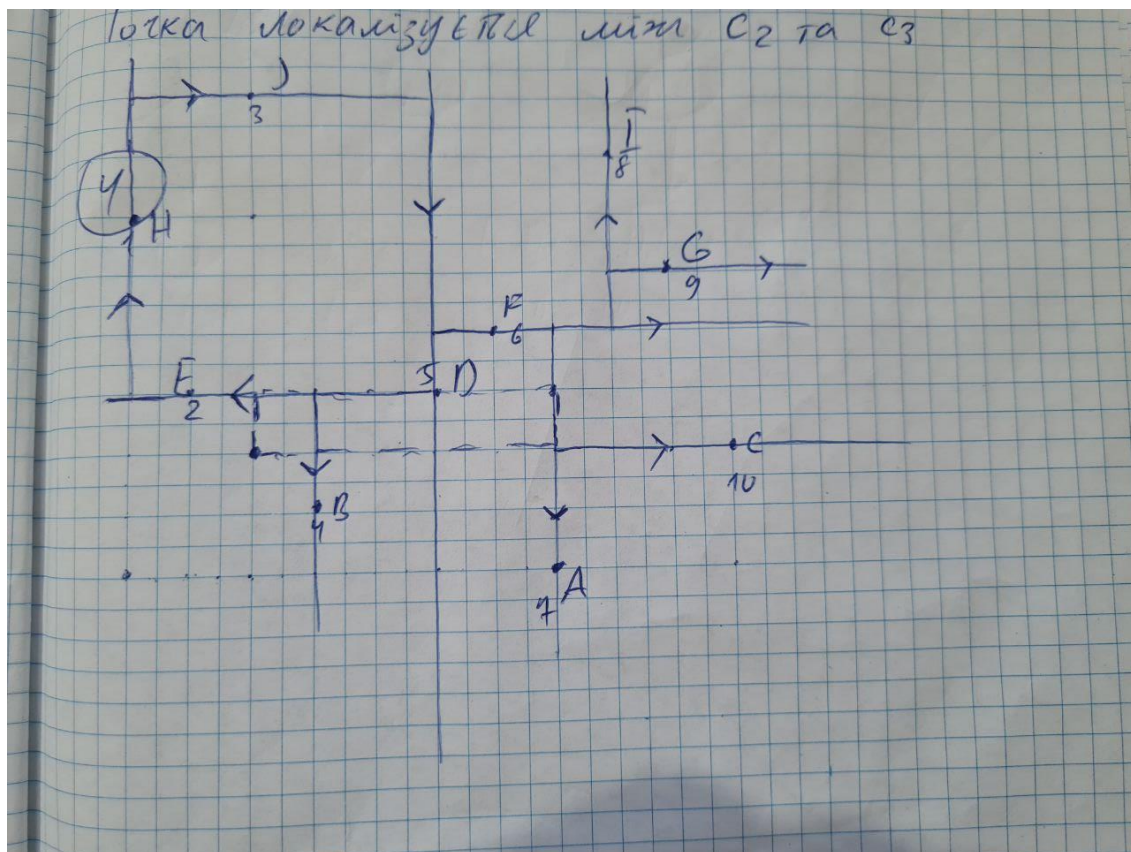 Точка локалізується між C2 та C3
J
3
I
8
4
H
1
G
9
F
6
E
2
5 D
C
10
B
4
A
7